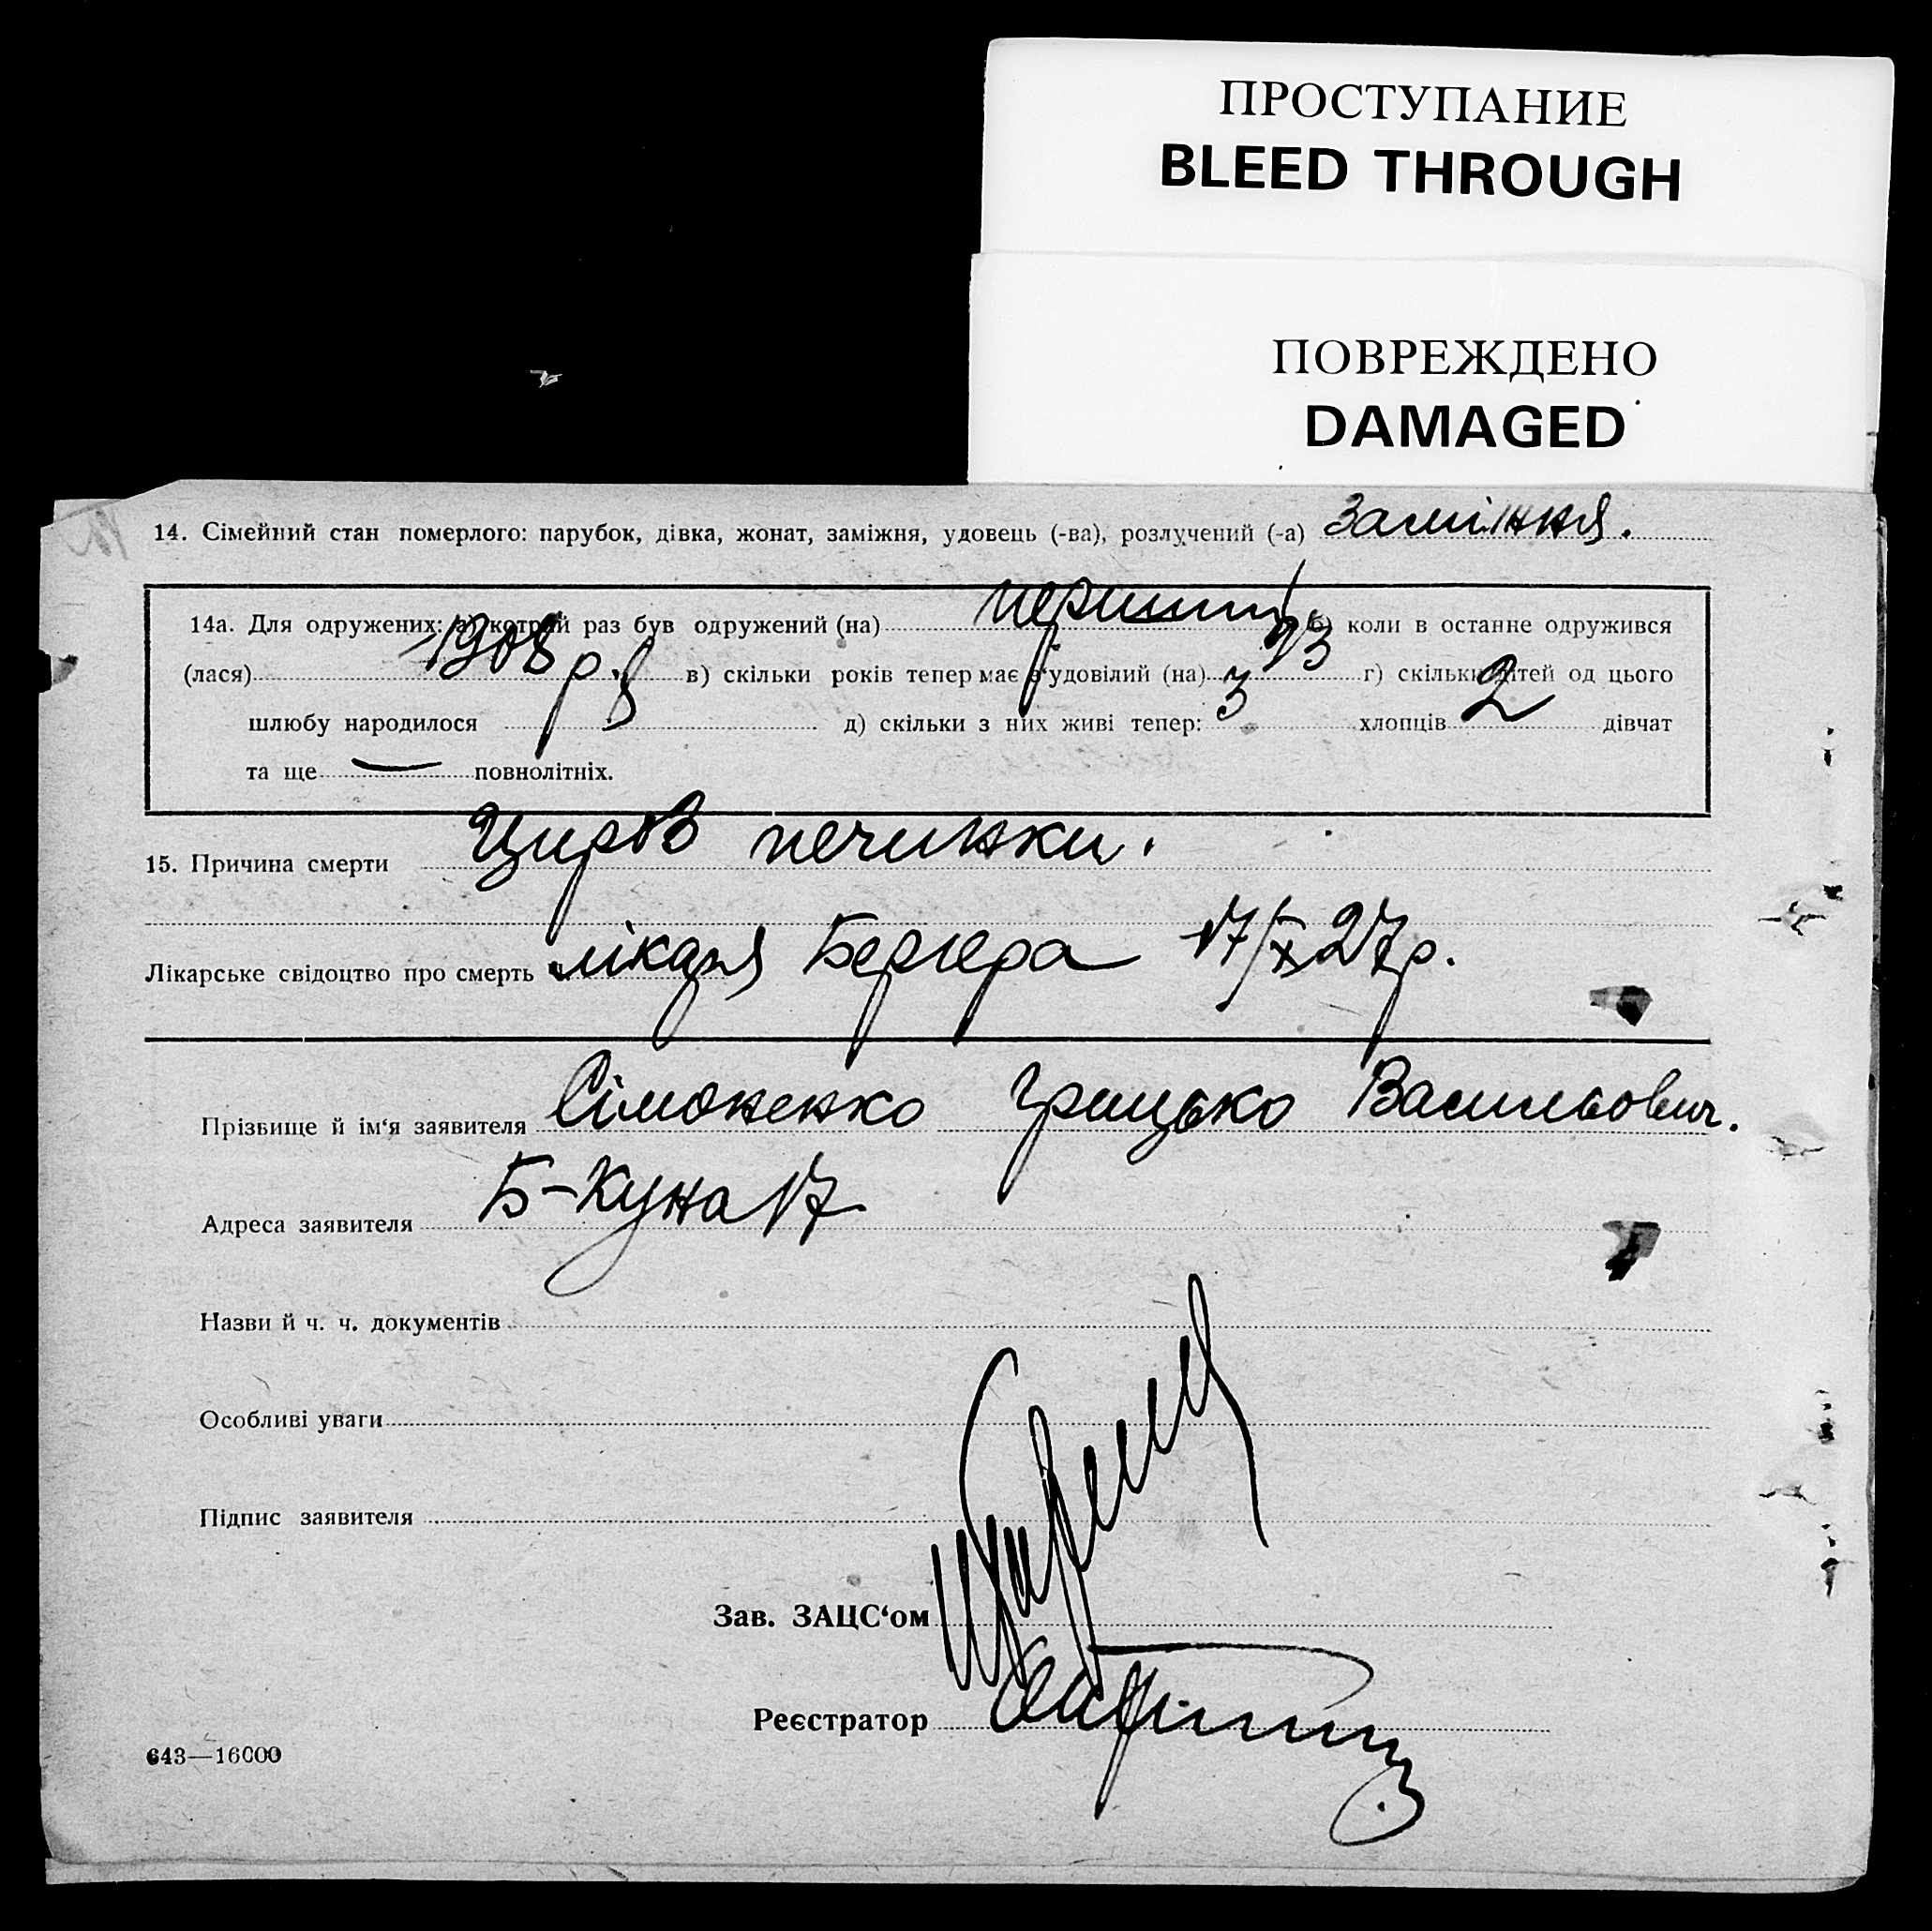 ПРОСТУПАНИЕ
BLEED THROUGH
ПОВРЕЖДЕНО
DAMAGED
14. Сімейний стан померлого: парубок, дівка, жонат, заміжня, удовець (-ва), розлучений (-а) заміжня.
14а. Для одружених: а) котрий раз був одружений (на) перший б) коли в останне одружився
(лася) 1908 р. в) скільки років тепер має о'удовілий (на) г) скільки дітей од цього
шлюбу народилося 8 д) скільки з них живі тепер: 3 хлопців 2 дівчат
та ще — повнолітніх.
15. Причина смерти Цироз печинки.
Лікарське свідоцтво про смерть лікаря Бергера 17/IX 27 р.
Прізвище й ім'я заявителя Сімоненко Грицько Васильович.
Адреса заявителя Б-Куна 17
Назви й ч. ч. документів
Особливі уваги
Підпис заявителя
Зав. ЗАЦС'ом
Реєстратор
643—16000